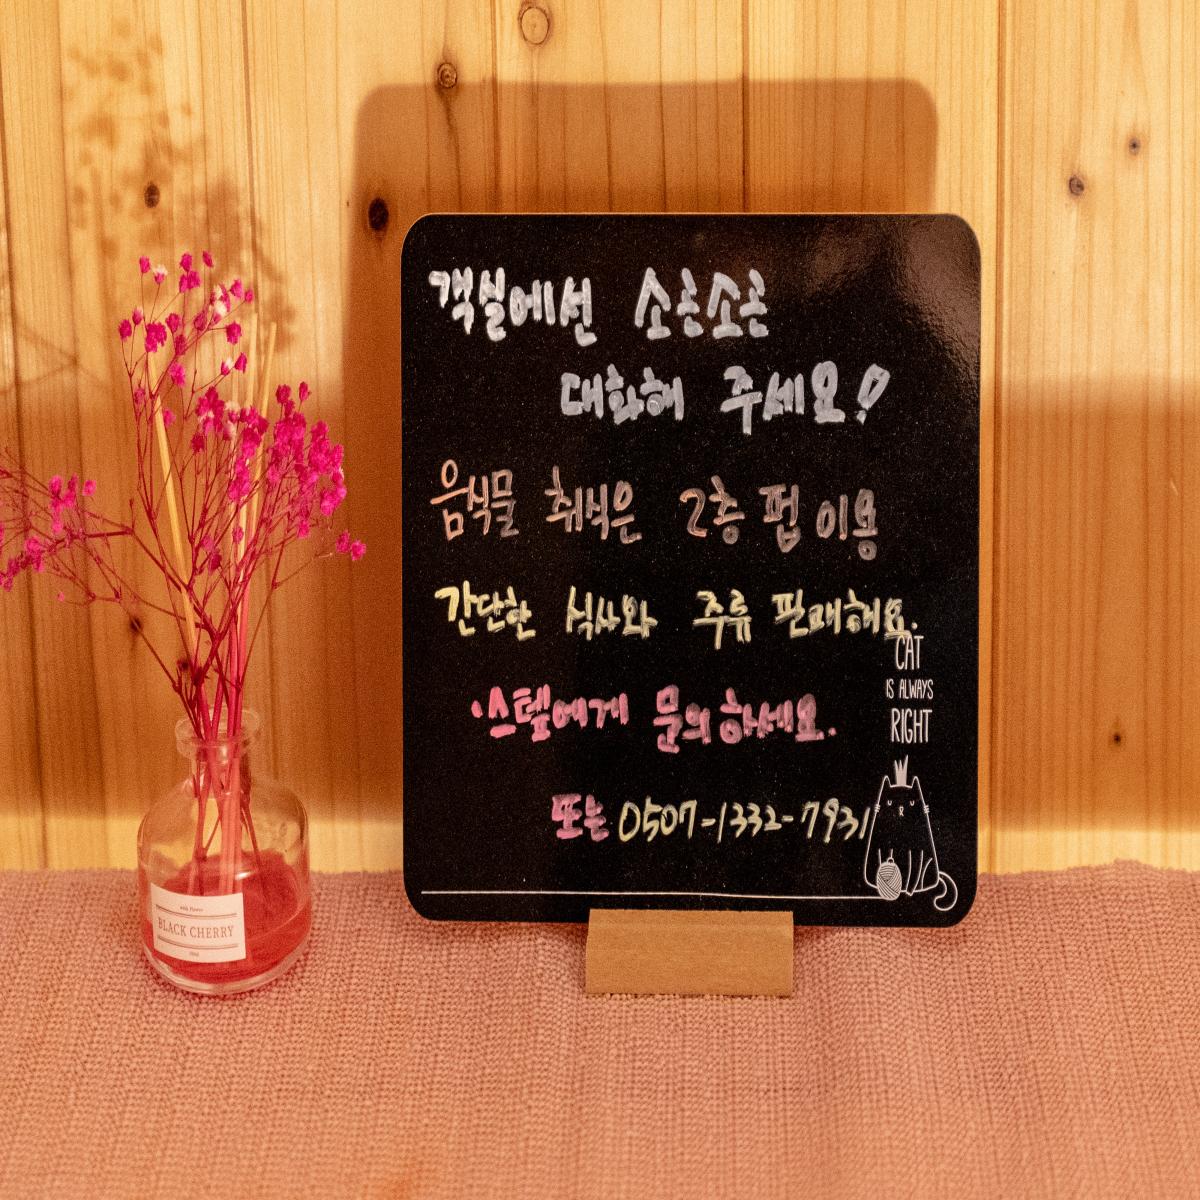 객실에선 소곤소곤
대화해 주세요!
음식물 취식은 2층 펍 이용
간단한 식사와 주류 판매해요.
CAT
IS ALWAYS
RIGHT
·스텝에게 문의하세요.
또는 0507-1332-7931
BLACK CHERRY